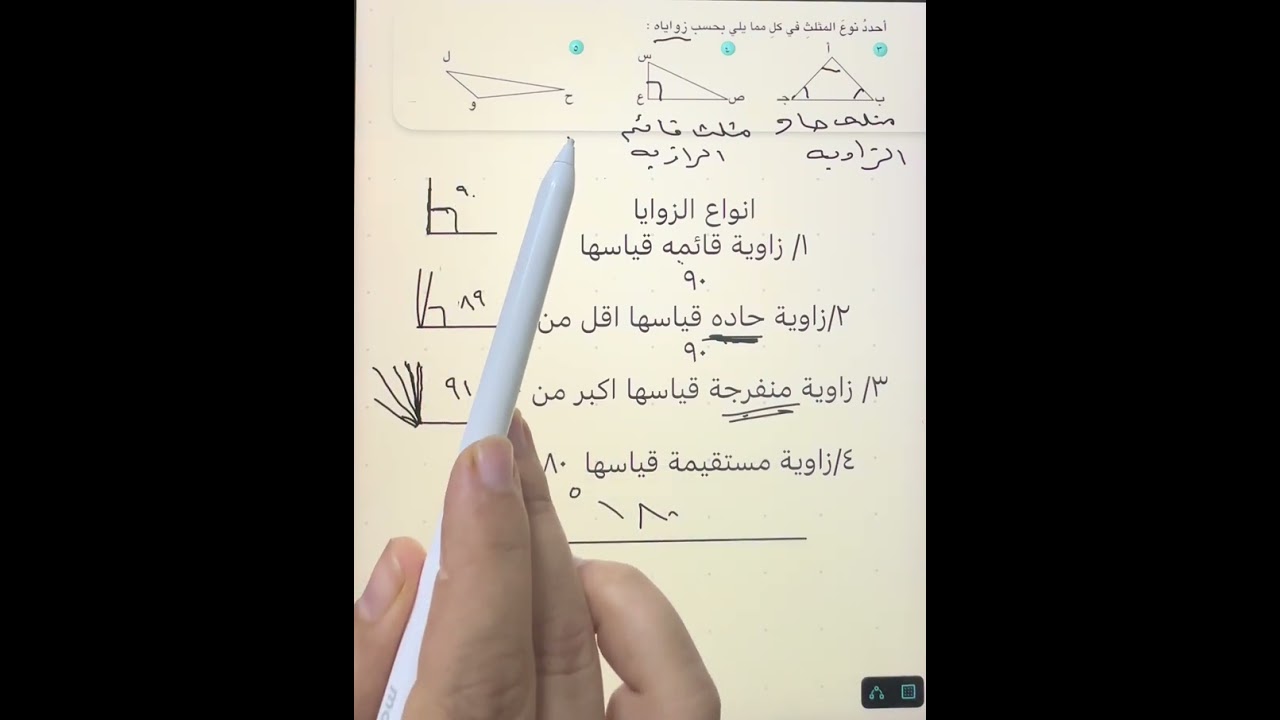 أحددُ نوعَ المثلثِ في كلٍ مما يلي بحسبِ زواياه :
٣ ٤ ٥
أ
ب
جـ
س
ص
ع
ل
ح
و
مثلث حاد
الزاويه
مثلث قائم
الزاويه
انواع الزوايا
١/ زاوية قائمه قياسها
٩٠
٩٠
٢/زاوية حاده قياسها اقل من
٩٠
٨٩
٣/ زاوية منفرجة قياسها اكبر من
٩١
٤/زاوية مستقيمة قياسها ٨٠
١٨٠